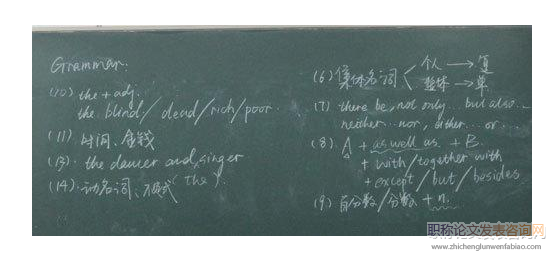 Grammar.
(10) the + adj.
the blind / dead / rich / poor.
(11). 时间、金钱
(13). the dancer and singer
(the)
(14). 动名词、不定式
(6) 集体名词 < 个人 → 复
整体 → 单
(7) there be, not only... but also...
neither... nor, either... or...
(8). A + as well as + B.
+ with / together with
+ except / but / besides
(9) 百分数 / 分数 + n.
职称论文发表咨询网
www.zhichenglunwenfabiao.com